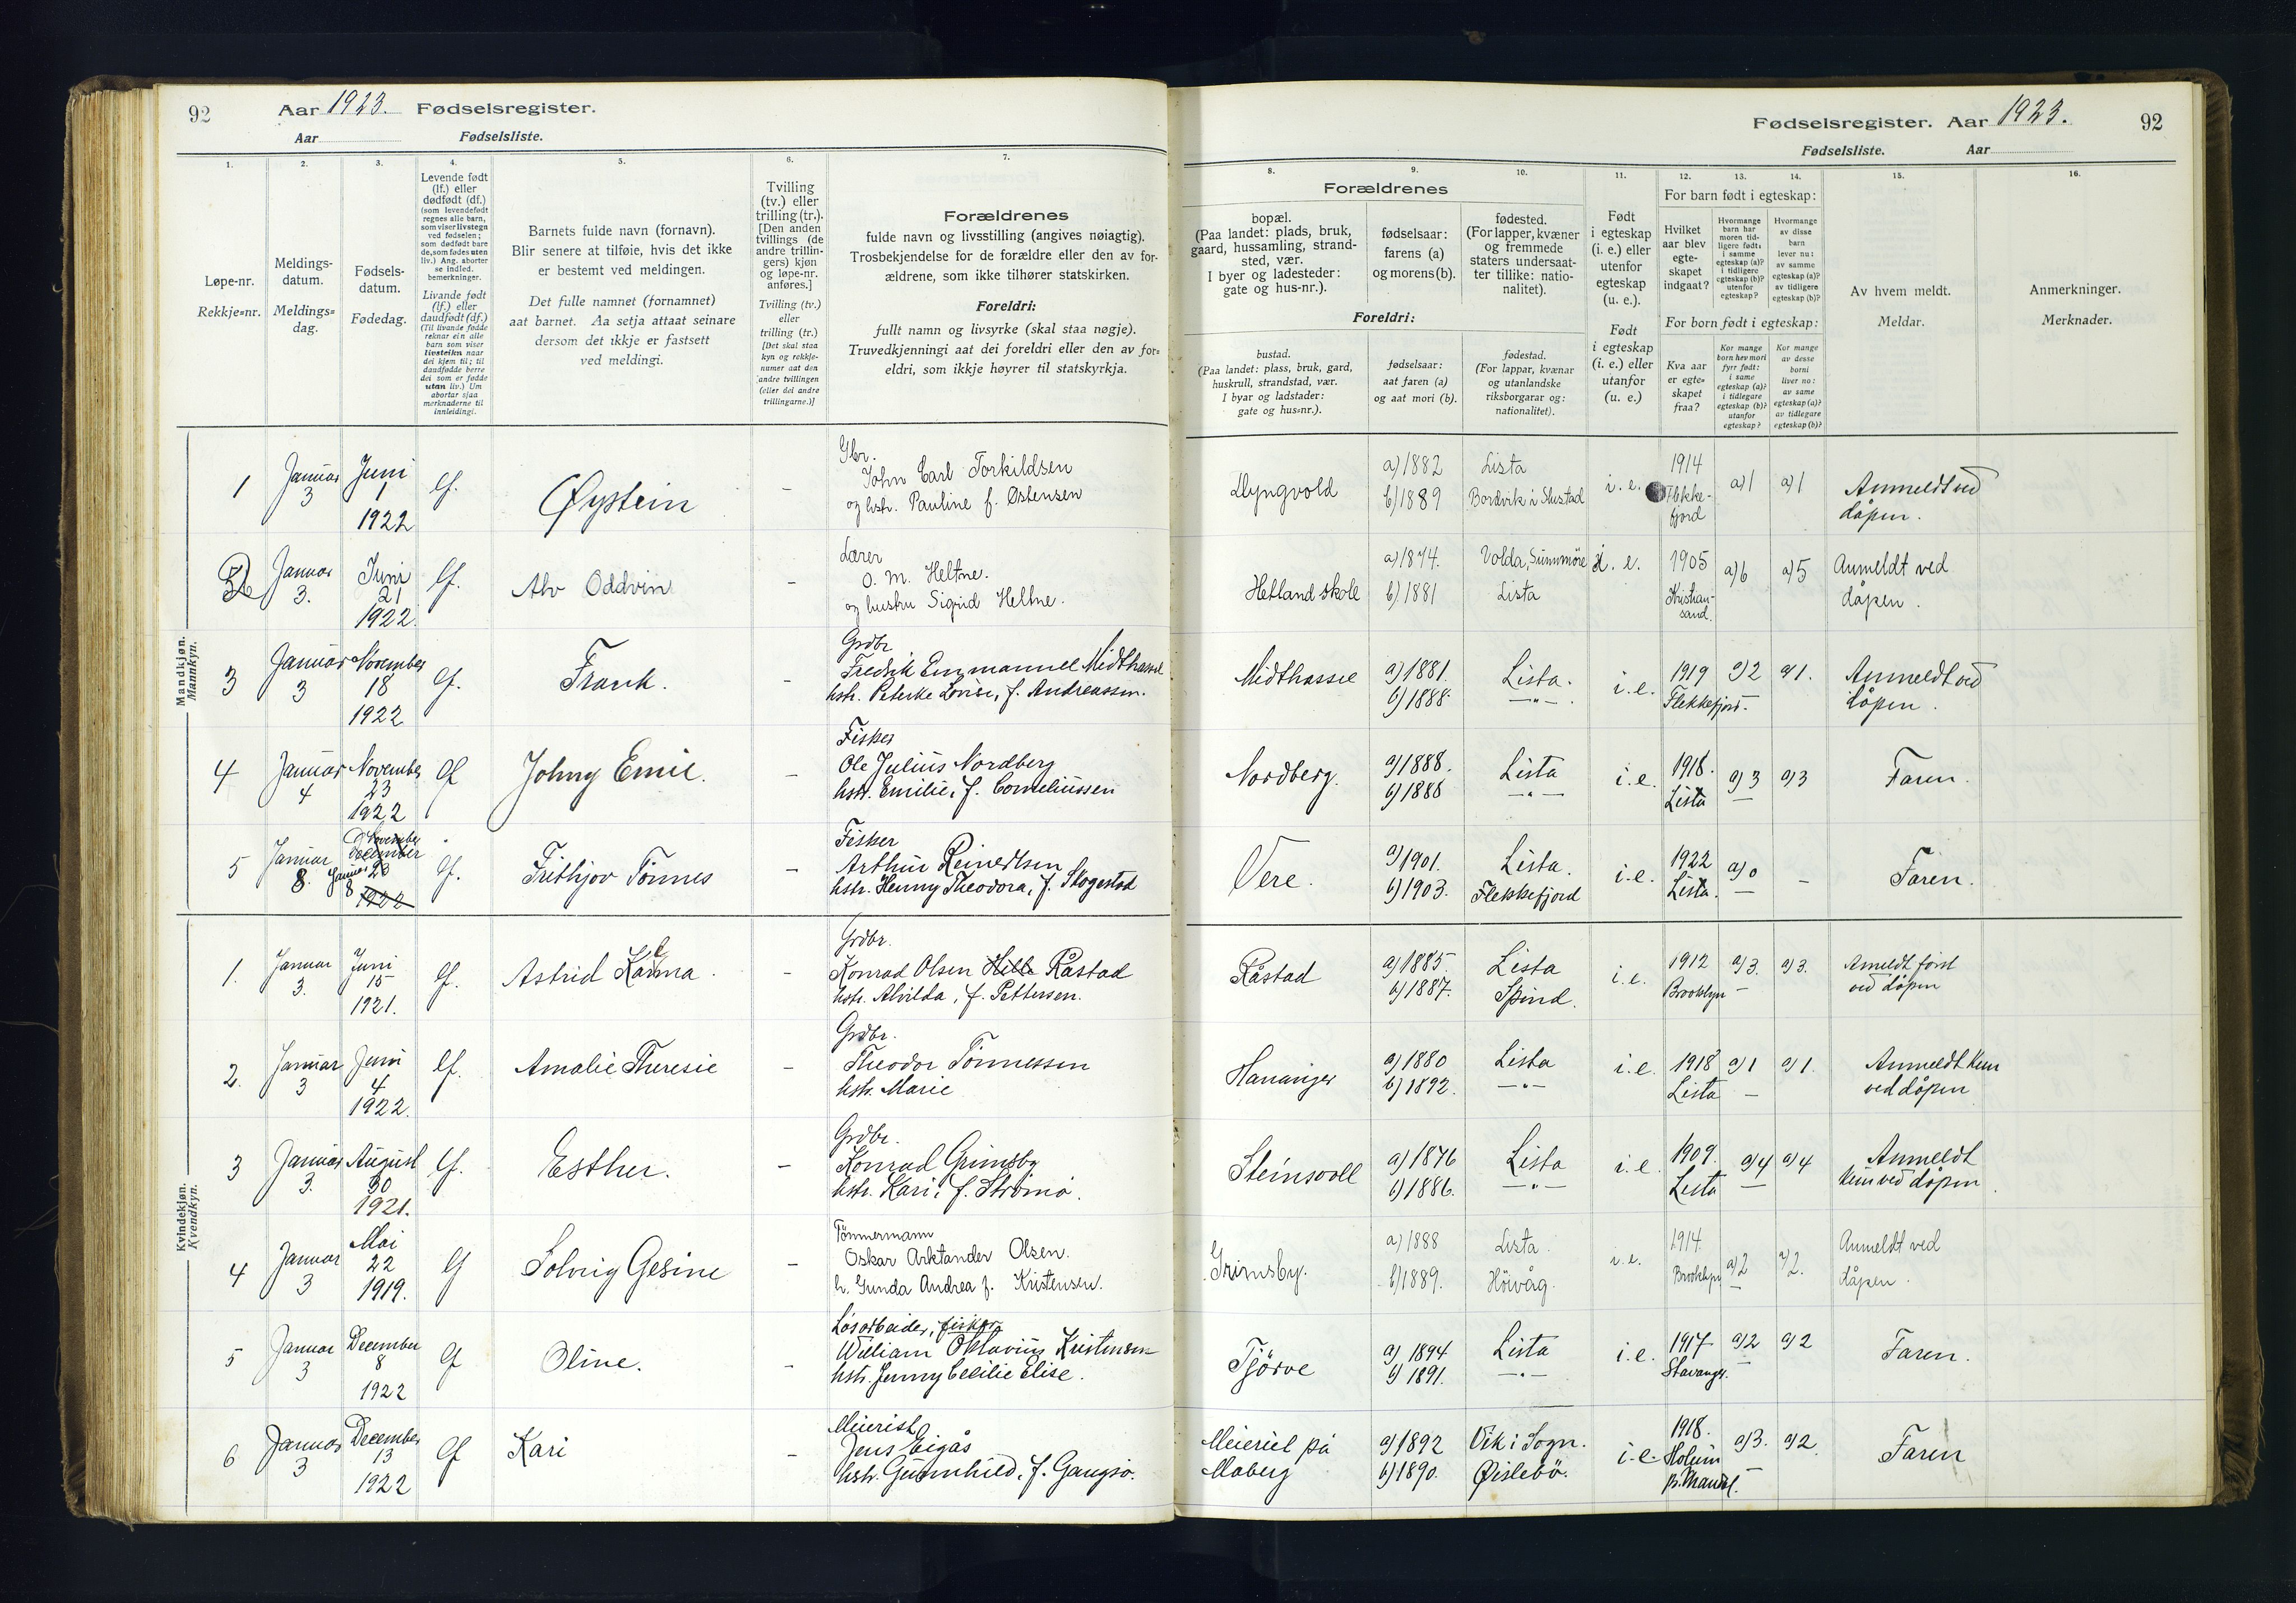 92
Aar 1923. Fødselsregister.
Aar Fødselsliste.
Fødselsregister. Aar 1923.
Fødselsliste. Aar
92
1.
Løpe-nr.
Rekkje=nr.
2.
Meldings-
datum.
Meldings=
dag.
3.
Fødsels-
datum.
Fødedag.
4.
Levende født
(lf.) eller
dødfødt (df.)
(som levendefødt
regnes alle barn,
som viser livstegn
ved fødselen;
som dødfødt bare
de, som fødes uten
liv.) Ang. aborter
se indled.
bemerkninger.
Livande født
(lf.) eller
daudfødt (df.)
(Til livande fødde
reknar ein alle
barn som viser
livsteikn naar
dei kjem til; til
daudfødde berre
dei som er fødde
utan liv.) Um
abortar sjaa
merknaderne til
innleidingi.
5.
Barnets fulde navn (fornavn).
Blir senere at tilføie, hvis det ikke
er bestemt ved meldingen.
Det fulle namnet (fornamnet)
aat barnet. Aa setja attaat seinare
dersom det ikkje er fastsett
ved meldingi.
6.
Tvilling
(tv.) eller
trilling (tr.).
[Den anden
tvillings (de
andre trillin-
gers) kjøn
og løpe-nr.
anføres.]
Tvilling (tv.)
eller
trilling (tr.)
[Det skal staa
kyn og rekkje-
numer aat den
andre tvillingen
(eller dei andre
trillingarne.)]
7.
Forældrenes
fulde navn og livsstilling (angives nøiagtig).
Trosbekjendelse for de forældre eller den av for-
ældrene, som ikke tilhører statskirken.
Foreldri:
fullt namn og livsyrke (skal staa nøgje).
Truvedkjenningi aat dei foreldri eller den av for=
eldri, som ikkje høyrer til statskyrkja.
8.
Forældrenes
bopæl.
(Paa landet: plads, bruk,
gaard, hussamling, strand-
sted, vær.
I byer og ladesteder:
gate og hus-nr.).
Foreldri:
bustad.
(Paa landet: plass, bruk, gard,
huskrull, strandstad, vær.
I byar og ladstader:
gate og hus=nr.).
9.
fødselsaar:
farens (a)
og morens (b).
fødselsaar:
aat faren (a)
og aat mori (b).
10.
fødested.
(For lapper, kvæner
og fremmede
staters undersaat-
ter tillike: natio-
nalitet).
fødestad.
(For lappar, kvænar
og utanlandske
riksborgarar og:
nationalitet).
11.
Født
i egteskap
(i. e.) eller
utenfor
egteskap
(u. e.).
Født
i egteskap
(i. e.) eller
utanfor
(u. e.)
12. 13. 14.
For barn født i egteskap:
Hvilket
aar blev
egte-
skapet
indgaat?
Hvormange
barn har
moren tid-
ligere født:
i samme
egteskap (a)?
i tidligere
egteskap (b)?
utenfor
egteskap?
Hvormange
av disse
barn
lever nu:
av samme
egteskap (a)?
av tidligere
egteskap (b)?
For born født i egteskap:
Kva aar
er egte=
skapet
fraa?
Kor mange
born hev mori
fyrr født:
i same
egteskap (a)?
i tidlegare
egteskap (b)?
utanfor
egteskap?
Kor mange
av desse
borni
liver no:
av same
egteskap (a)?
av tidlegare
egteskap (b)?
15.
Av hvem meldt.
Meldar.
16.
Anmerkninger.
Merknader.
Mandkjøn.
Mannkyn.
1 Januar 3 Juni 1 1922 lf. Øystein - Gbr.
John Carl Torkildsen
og hstr. Pauline f. Østensen
Llyngvold a) 1882 b) 1889 Lista i. e. 1914 Flekke-
fjord a) 1 a) 1 Anmeldt ved
dåpen.
2 Januar 3. Juni 21 1922. lf. Alv Oddvin - Lærer
O. M. Heltne.
og hustru Sigrid Heltne.
Hetland skole a) 1874. b) 1881 Volda, Sunnmöre Lista i. e. 1905 Kristian-
sand. a) 6 a) 5 Anmeldt ved
dåpen.
3 Januar 3 November 18 1922 lf. Frank. - Grdbr
Fredrik Emmanuel Midthassel
hstr. Peterke Lovise, f. Andreassen.
Midthassel a) 1881. b) 1888. Lista. -"- i. e. 1919 Flekkefjord. a) 2 a) 1. Anmeldt ved
dåpen.
4 Januar 4 November 23 1922 lf Johny Emil. - Fisker
Ole Julius Nordberg
hstr. Emilie, f. Corneliussen
Nordberg. a) 1888. b) 1888 Lista -"- i. e. 1918. Lista a) 3 a) 3 Faren.
5 Januar 8. November December 20 Januar 8 1922 lf. Frithjov Tönnes - Fisker
Arthur Reinertsen
hstr. Henny Theodora, f. Skogestad
Vere. a) 1901. b) 1903. Lista. Flekkefjord i. e. 1922 Lista. a) 0 - Faren.
Kvindekjøn.
Kvendkyn.
1. Januar 3. Juni 15 1921. lf. Astrid Kalma. - Grdbr.
Konrad Olsen Hille Råstad
hstr. Alvilda, f. Pettersen.
Råstad a) 1885. b) 1887. Lista Spind. i. e. 1912 Brooklyn a) 3. a) 3. Anmeldt først
ved dåpen
2. Januar 3 Juni 4 1922. lf. Amalie Theresie - Grdbr.
Theodor Tönnessen
hstr. Marie
Hananger a) 1880 b) 1892. Lista -"- i. e. 1918 Lista a) 1 a) 1. Anmeldt kun
ved dåpen
3 Januar 3. August 30 1921. lf. Esther. - Grdbr.
Konrad Grimsby
hstr. Kari, f. Strömö.
Steinsvoll a) 1876 b) 1886. Lista -"- i. e. 1909. Lista a) 4 a) 4 Anmeldt
kun ved dåpen
4 Januar 3 Mai 22 1919. lf Solveig Gesine - Tömmermann
Oskar Arktander Olsen.
h. Gunda Andrea f. Kristensen.
Grimsby. a) 1888 b) 1889. Lista. Höivåg. i. e. 1914. Brooklyn a) 2 a) 2. Anmeldt ved
dåpen.
5 Januar 3 December 8 1922 lf Oline. - Løsarbeider, fisker
William Oktavius Kristensen
hstr. Jenny Cecilie Elise.
Tjörve a) 1894 b) 1891. Lista -"- i. e. 1917 Stavanger. a) 2 a) 2 Faren.
6 Januar 3 December 13 1922 lf Kari - Meierist
Jens Eigås
hstr. Gunnhild, f. Gangsö.
Meieriet på
Moberg a) 1892 b) 1890. Vik i Sogn. Øislebö. i. e. 1918. Holum
p. Mandal. a) 3. a) 2. Faren